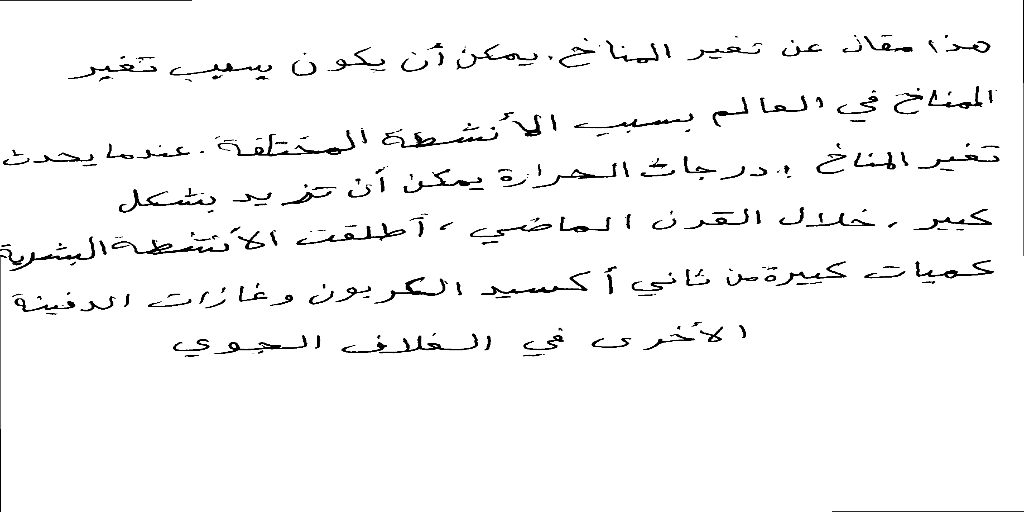 هذا مقال عن تغير المناخ. يمكن أن يكون بسبب تغير
المناخ في العالم بسبب الأنشطة المختلفة. عندما يحدث
تغير المناخ، درجات الحرارة يمكن أن تزيد بشكل
كبير. خلال القرن الماضي، أطلقت الأنشطة البشرية
كميات كبيرة من ثاني أكسيد الكربون وغازات الدفيئة
الأخرى في الغلاف الجوي